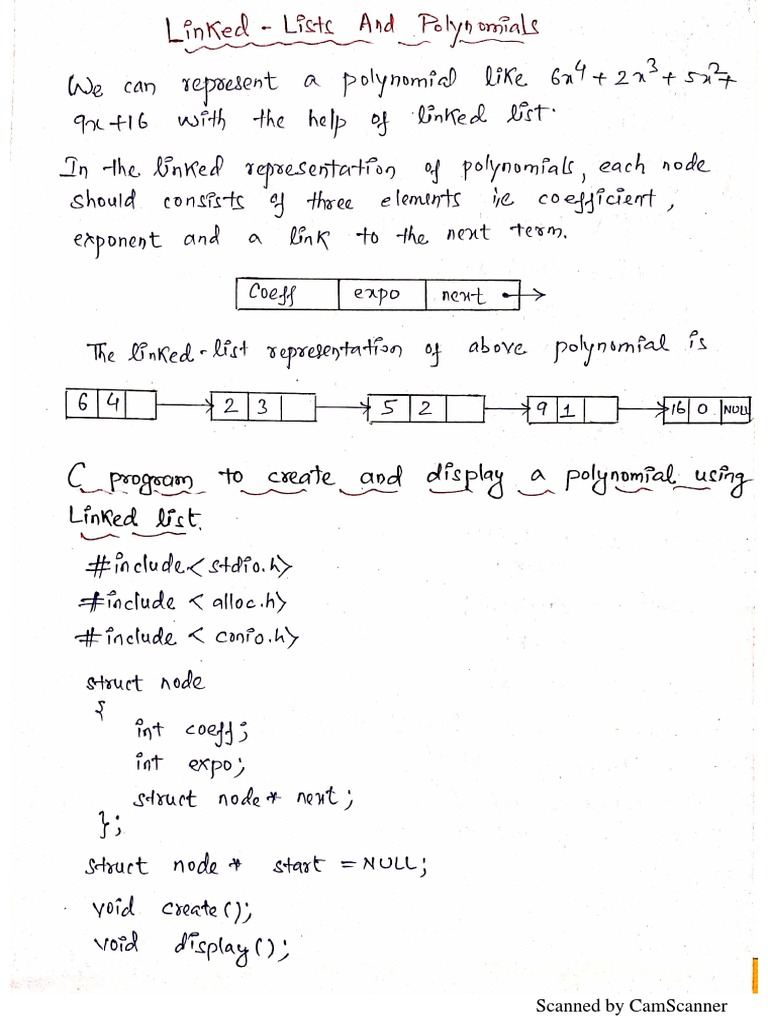 Linked - Lists And Polynomials
We can represent a polynomial like 6x⁴ + 2x³ + 5x² +
9x + 16 with the help of linked list.
In the linked representation of polynomials, each node
should consists of three elements i.e coefficient,
exponent and a link to the next term.
Coeff expo next
The linked-list representation of above polynomial is
6 4 2 3 5 2 9 1 16 0 NULL
C program to create and display a polynomial using
Linked list.
#include< stdio.h>
#include < alloc.h>
#include < conio.h>
struct node
{
int coeff;
int expo;
struct node* next;
};
struct node * start = NULL;
void create();
void display();
Scanned by CamScanner